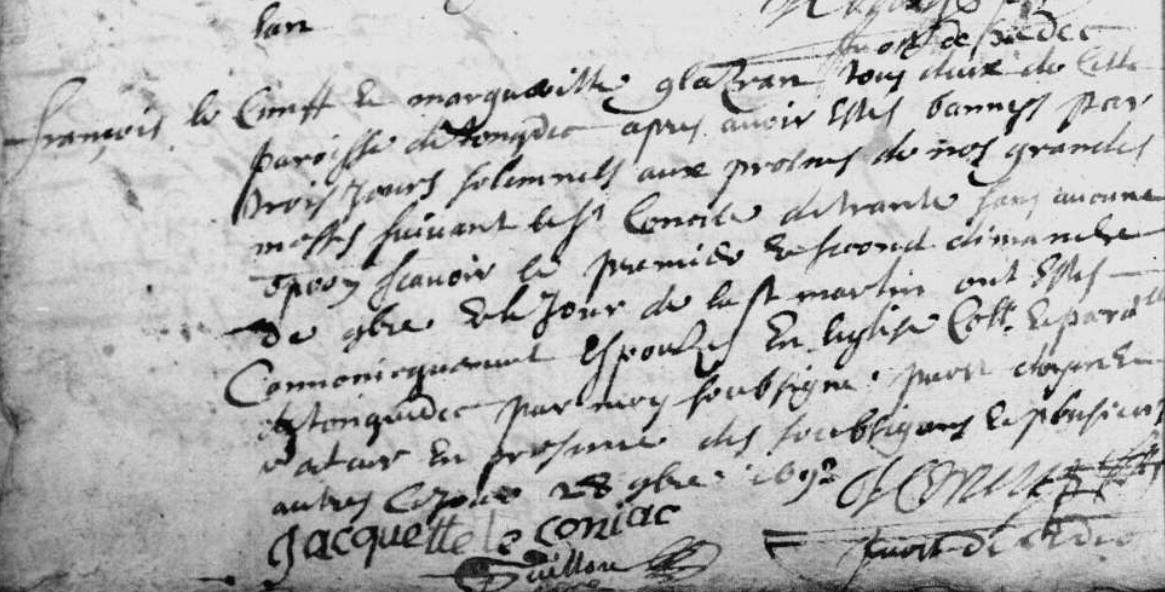 lan
françois le Cunff et margueritte glazran tous deux de cette
paroisse de tonqdec apres avoir estes bannys par
trois jours solemnels aux prosnes de nos grandes
messes suivant le st Concile de trante sans aucune
opoon scavoir le premier et second dimanche
de 9bre et le jour de la st martin ont estes
Canonicquement Espouzes En leglise Coll. et par
de tonquedec par moy soubsigne
en presence des soubsignans et plusieurs
autres Ce jour 28 9bre 1692
Jacquette le coniac
Guillou